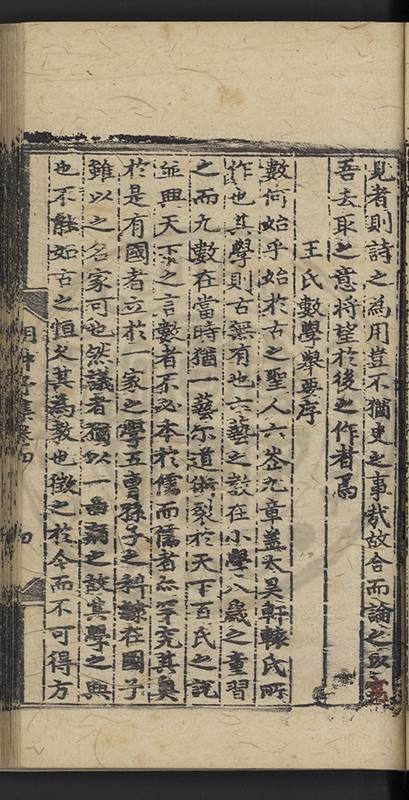 見者則詩之為用豈不猶史之事哉故合而論之以
吾去取之意將望於後之作者焉
王氏數學舉要序
數何始乎始於古之聖人六峜九章蓋太昊軒轅氏所
作也其學則古無有也六藝之數在小學八歲之童習
之而九數在當時猶一藝尔道術裂於天下百氏之說
並興天下之言數者不必本於儒而儒者亦罕究其奧
於是有國者立於一家之學五曹孫子之科隸在國子
雖以之名家可也然議者猶以一曲病之故其學之興
也不能如古之恒久其為教也徵之於今而不可得方
胡仲子集卷四